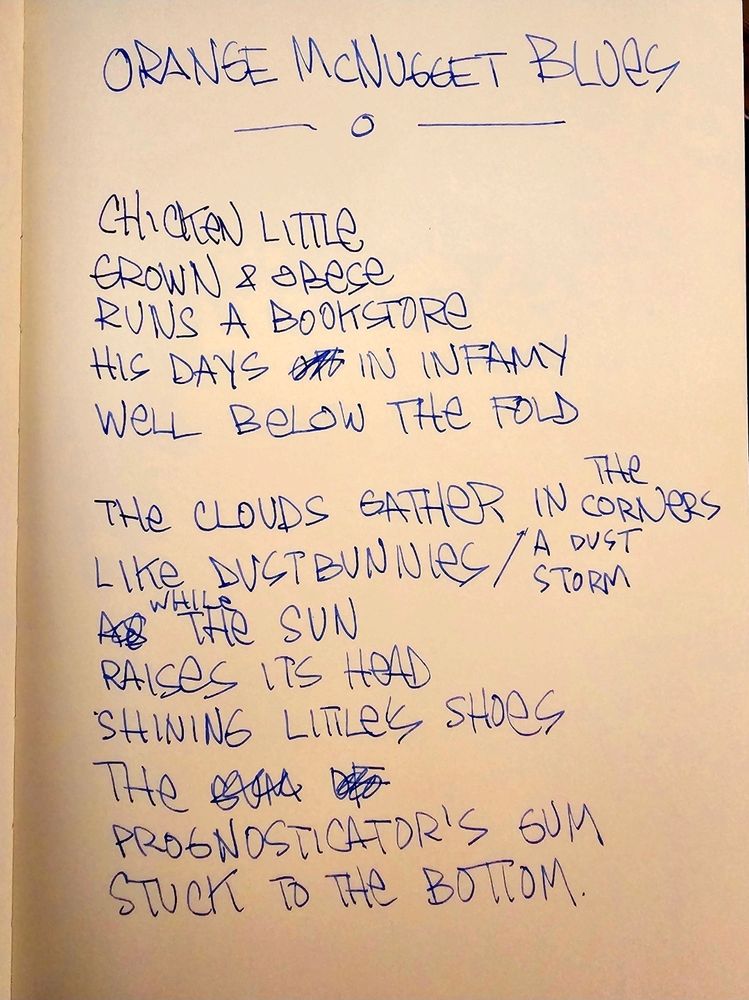 ORANGE McNUGGET BLUES
— O —
CHICKEN LITTLE
GROWN & OBESE
RUNS A BOOKSTORE
HIS DAYS IN INFAMY
WELL BELOW THE FOLD
THE CLOUDS GATHER IN THE CORNERS
LIKE DUSTBUNNIES / A DUST STORM
WHILE THE SUN
RAISES ITS HEAD
SHINING LITTLE'S SHOES
THE
PROGNOSTICATOR'S GUM
STUCK TO THE BOTTOM.